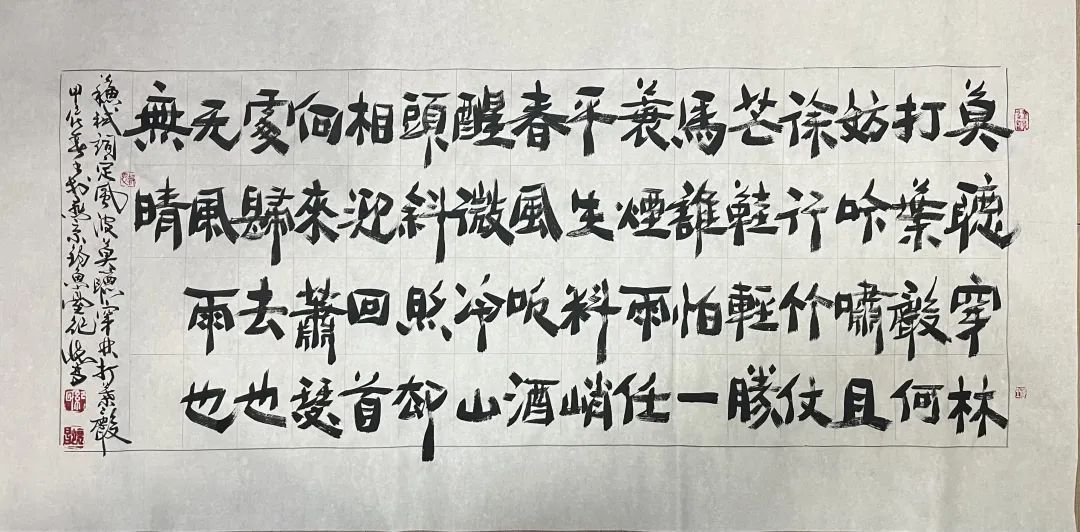 莫聽穿林
打葉聲何
妨吟嘯且
徐行竹仗
芒鞋輕勝
馬誰怕一
蓑煙雨任
平生料峭
春風吹酒
醒微冷山
頭斜照却
相迎回首
何來蕭瑟
處歸去也
无風雨也
無晴
蘇軾詞定風波莫聽穿林打葉聲
甲辰 書於 京釣魚臺